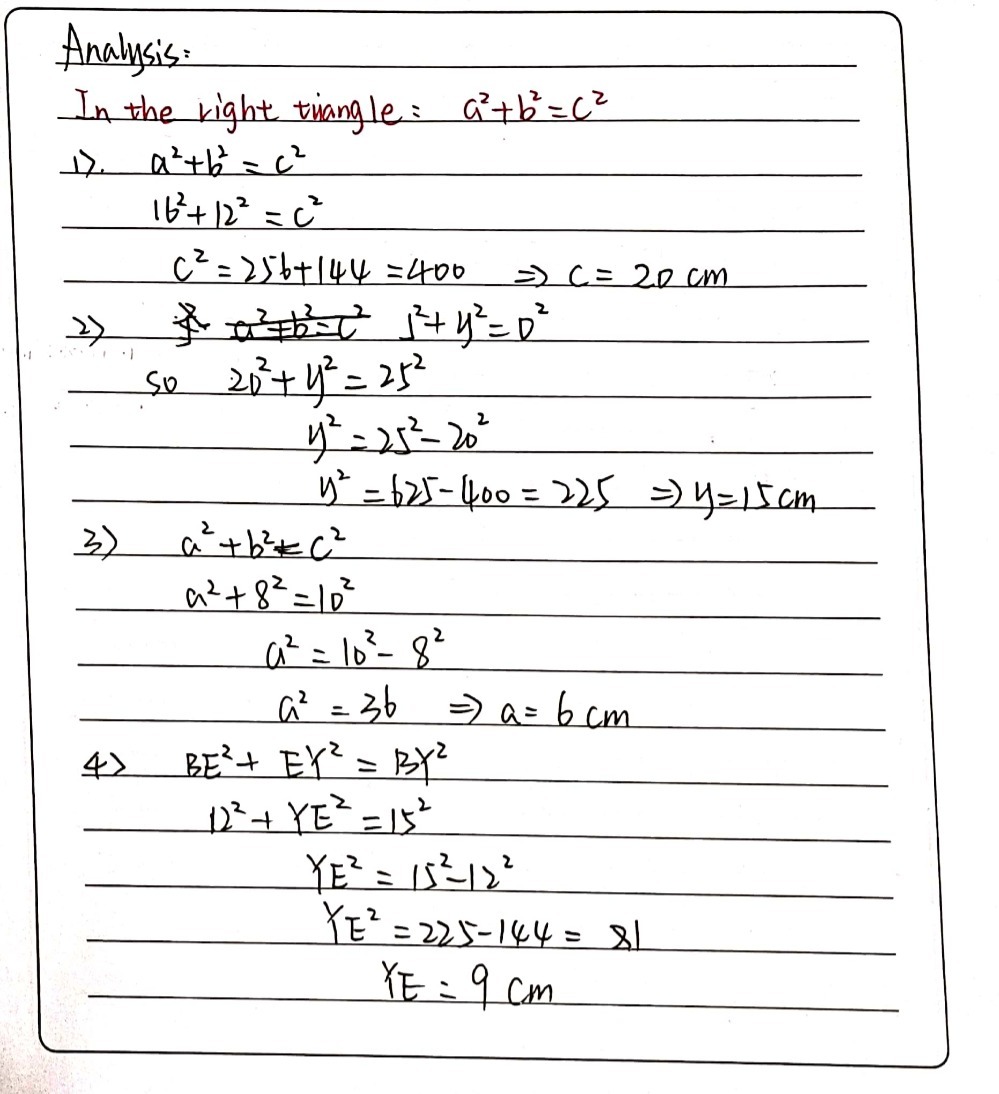 Analysis:
In the right triangle: a²+b²=c²
1). a²+b²=c²
16²+12²=c²
c²=256+144=400 ⇒ c= 20 cm
2) a²+b²=c² j²+y²=D²
so 20²+y²=25²
y²=25²-20²
y²=625-400=225 ⇒ y=15cm
3) a²+b²=c²
a²+8²=10²
a²=10²-8²
a²=36 ⇒ a=6cm
4) BE²+EY²=BY²
12²+YE²=15²
YE²=15²-12²
YE²=225-144=81
YE=9cm